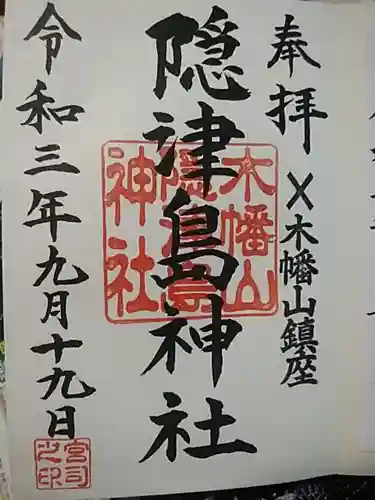 奉拝
X木幡山鎮座
隠津島神社
木幡山
隠津島
神社
令和三年九月十九日
宮司
之印